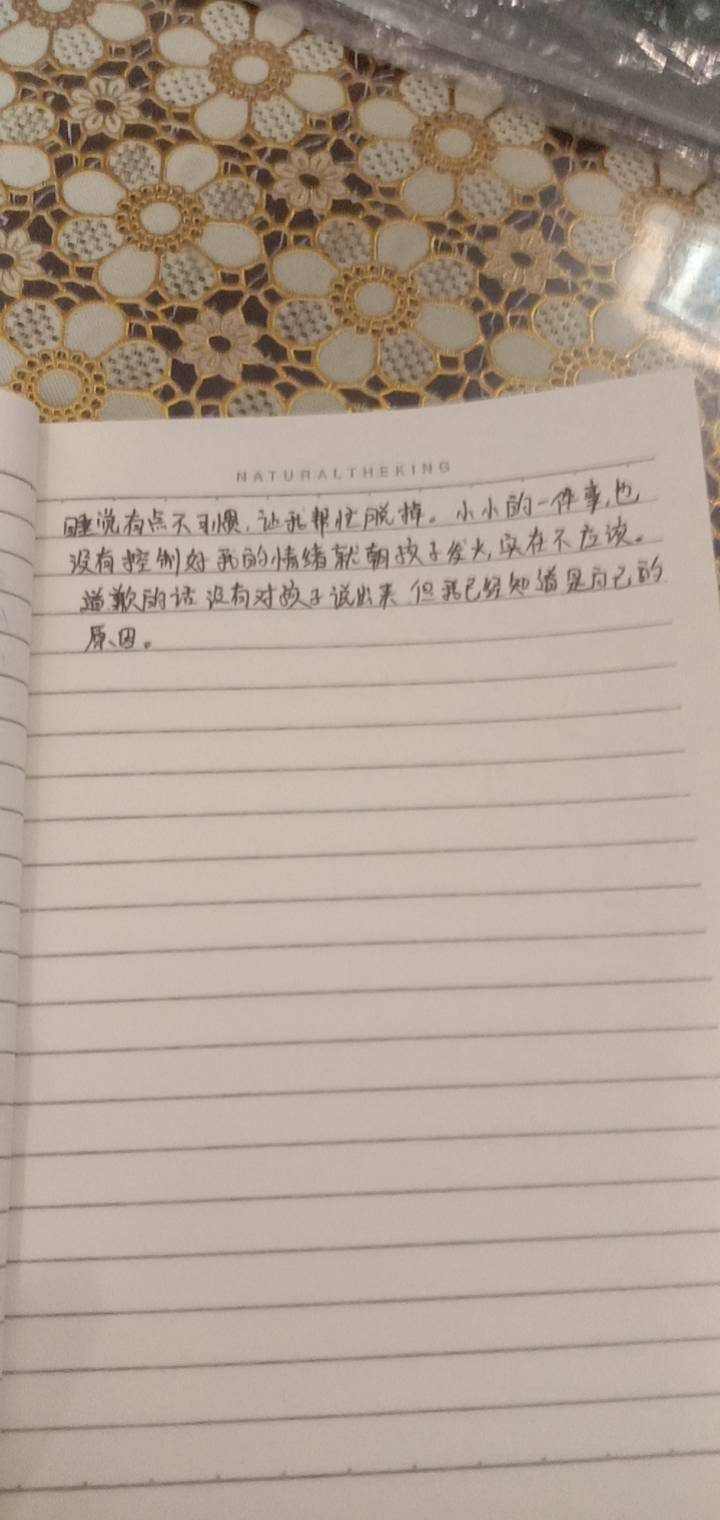 NATURALTHEKING
睡觉有点不习惯,让我帮忙脱掉。小小的一件事,也
没有控制好我的情绪就朝孩子发火,实在不应该。
道歉的话没有对孩子说出来 但我已经知道是自己的
原因。